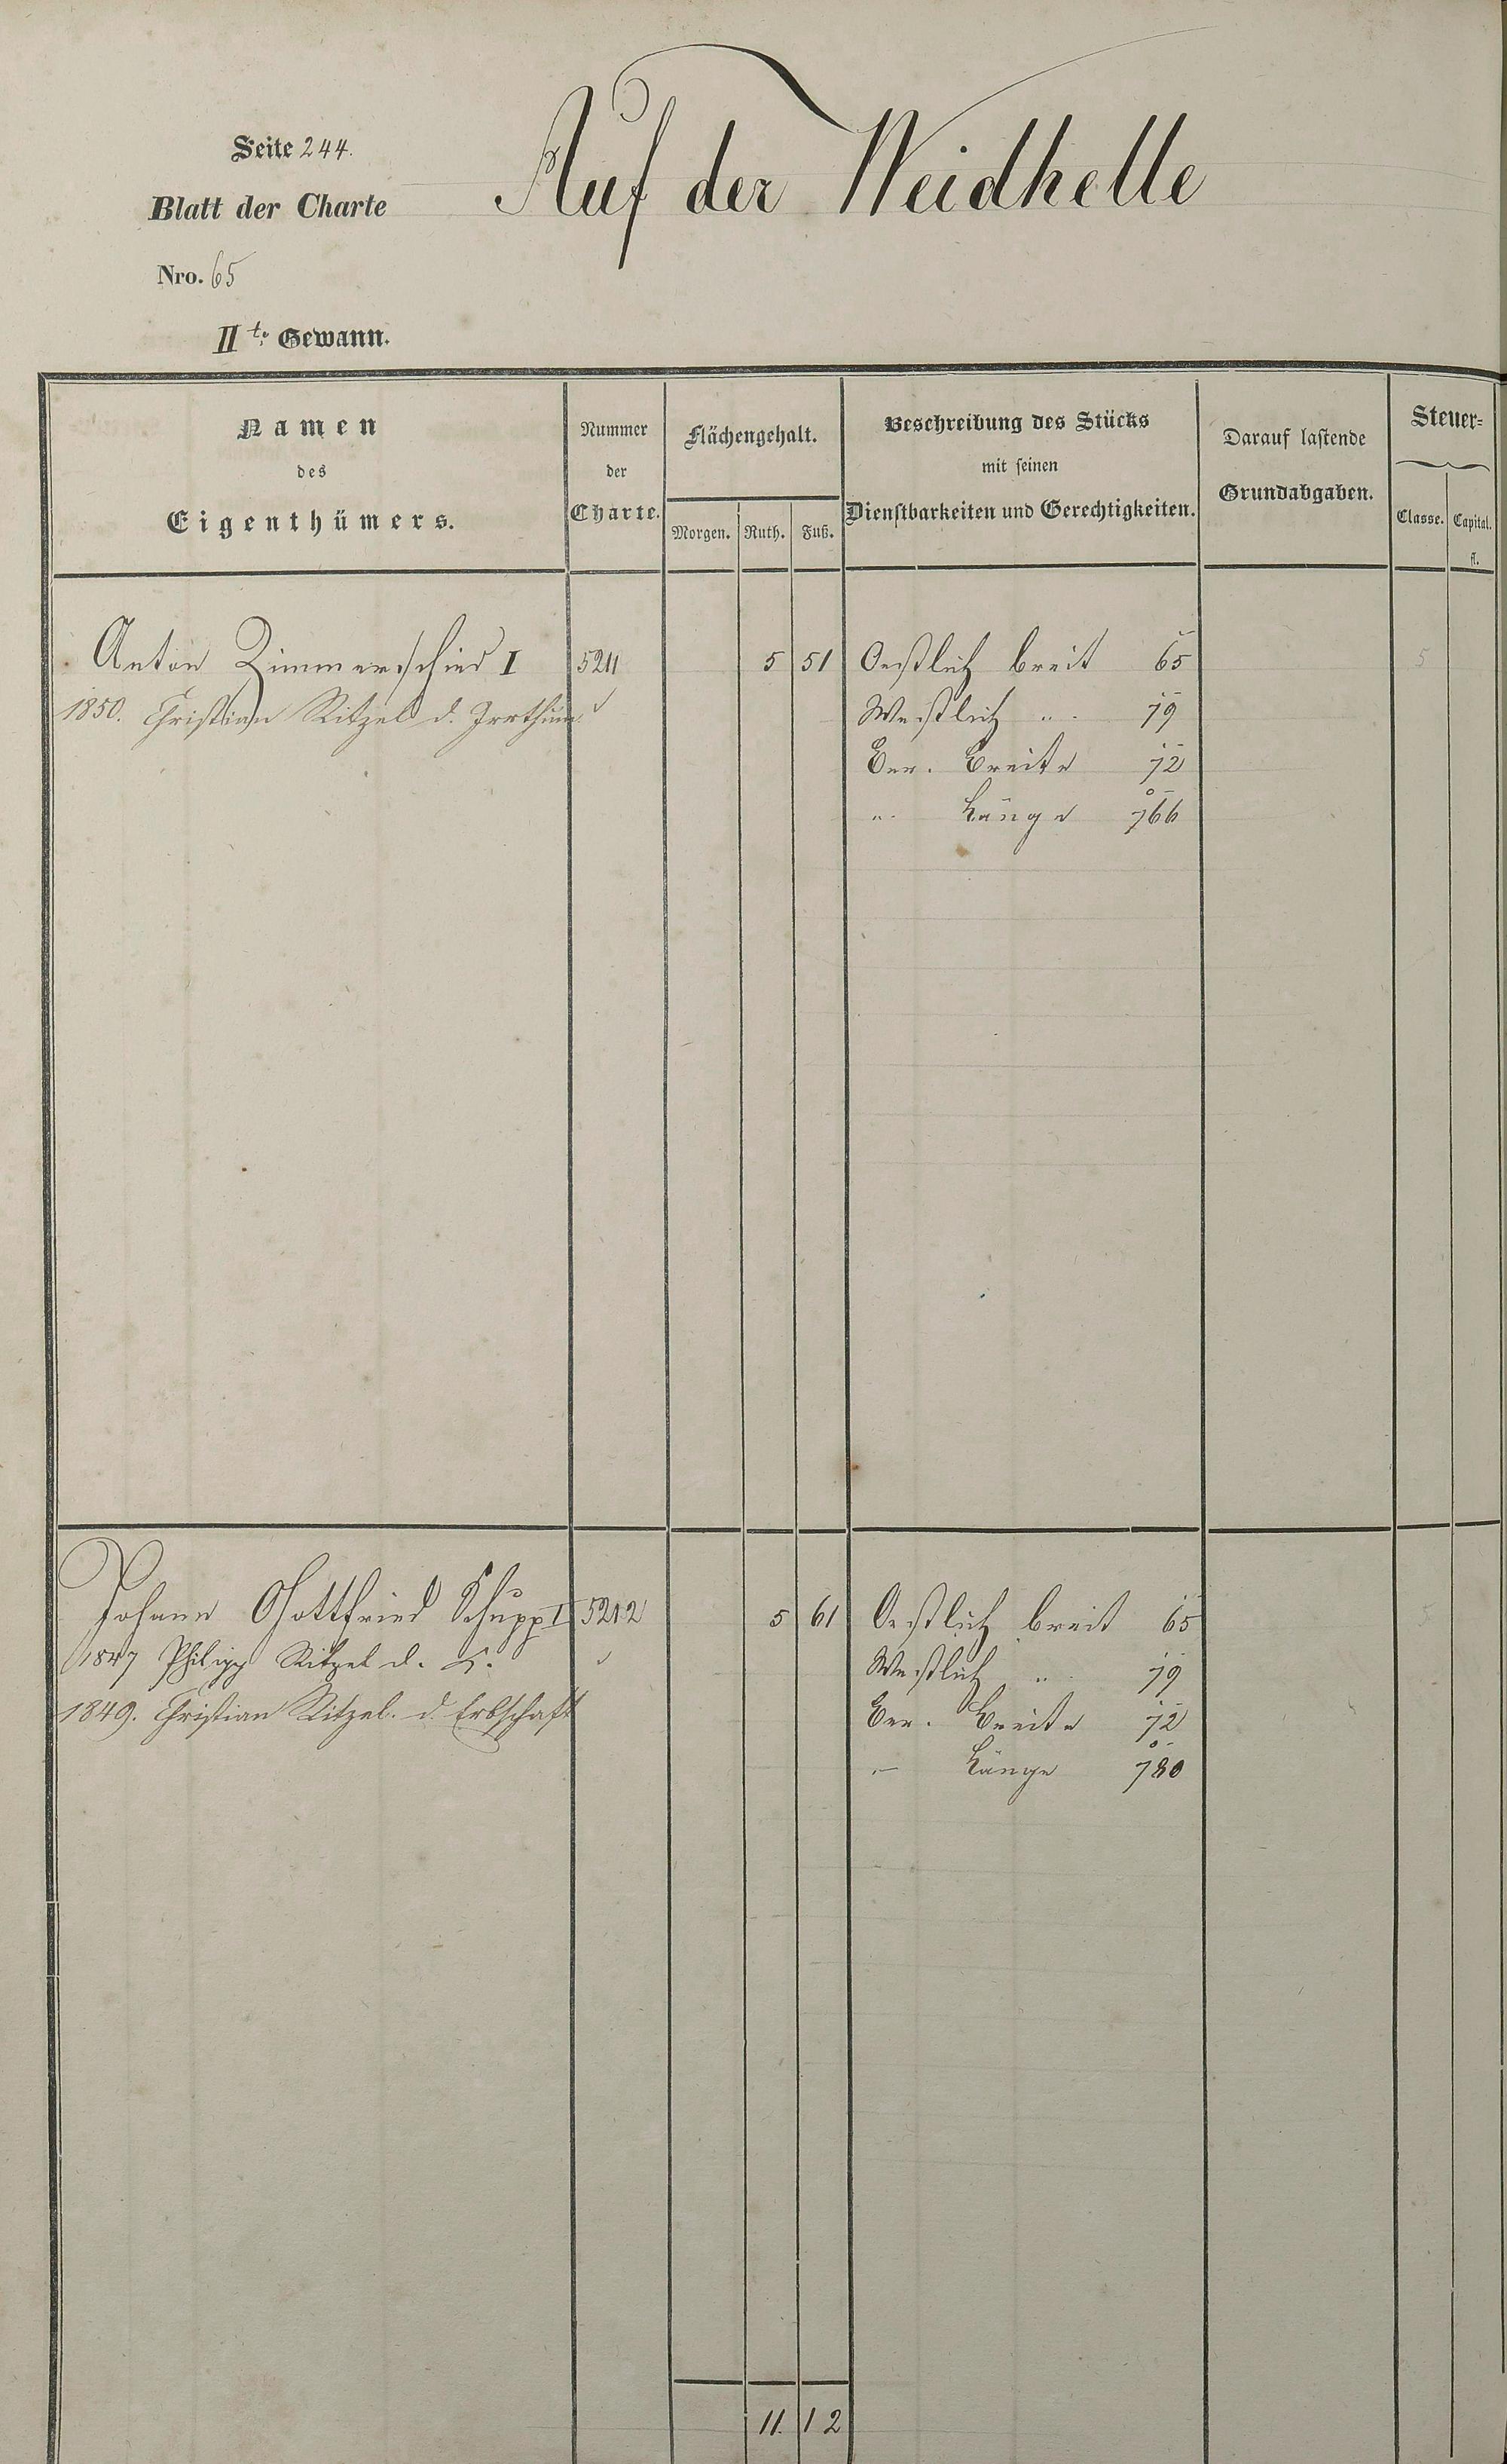 Seite 244.
Auf der Weidhelle
Blatt der Charte
Nro. 65
IIte Gewann.
Namen des Eigenthümers.
Nummer der Charte.
Flächengehalt.
Morgen. Ruth. Fuß.
Beschreibung des Stücks mit seinen Dienstbarkeiten und Gerechtigkeiten.
Darauf lastende Grundabgaben.
Steuer-
Classe. Capital.
fl.
Anton Zimmerschied I 5211 5 51 Oestlich breit 65 5
1850. Christian Ritzel d. Irrthum Westlich " 79
Ver. Breite 72
" Länge 766
Johann Gottfried Schupp I 5212 5 61 Oestlich breit 65 5
1847 Philipp Ritzel d. Westlich " 79
1849. Christian Ritzel. d. Erbschaft Ver. Breite 72
" Länge 780
11. 12